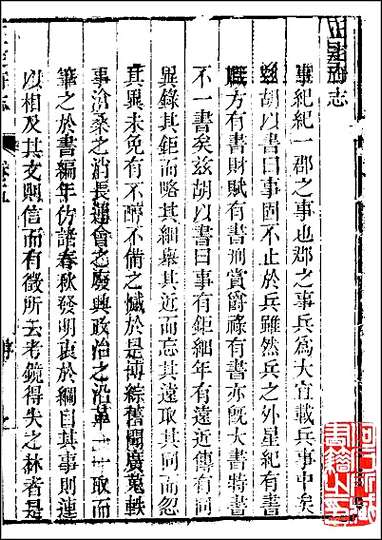 府志
事紀紀一郡之事也郡之事兵為大宜載兵事中矣
茲胡以書曰事固不止於兵雖然兵之外星紀有書
職方有書財賦有書刑賞爵祿有書亦旣大書特書
不一書矣茲胡以書曰事有鉅細年有遠近傳有同
異錄其鉅而略其細舉其近而忘其遠取其同而忽
其異未免有不醇不備之憾於是博綜舊聞廣蒐軼
事滄桑之消長運會之廢興政治之沿革一一取而
筆之於書編年仿諸春秋發明衷於綱目其事則連
以相及其文與信而有徵所云考鏡得失之林者是
府志
卷五